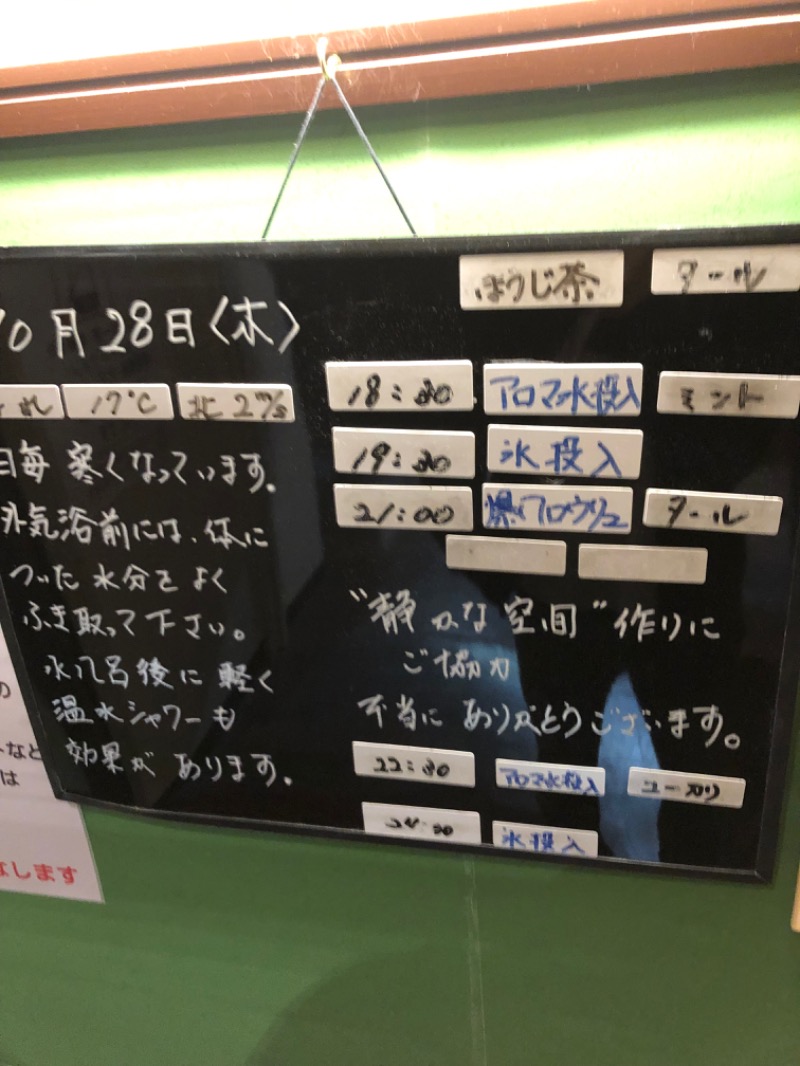 10月28日〈木〉
17℃
北 2m/s
日毎 寒くなっています。
外気浴前には、体に
ついた 水分をよく
ふき取って下さい。
水風呂後に 軽く
温水シャワーも
効果が あります。
ほうじ茶
タール
18:30 アロマ水投入 ミント
19:30 氷投入
21:00 爆ロウリュ タール
“静かな空間”作りに
ご協力
本当に ありがとうございます。
22:30 アロマ水投入 ユーカリ
氷投入
の
など
は
なします